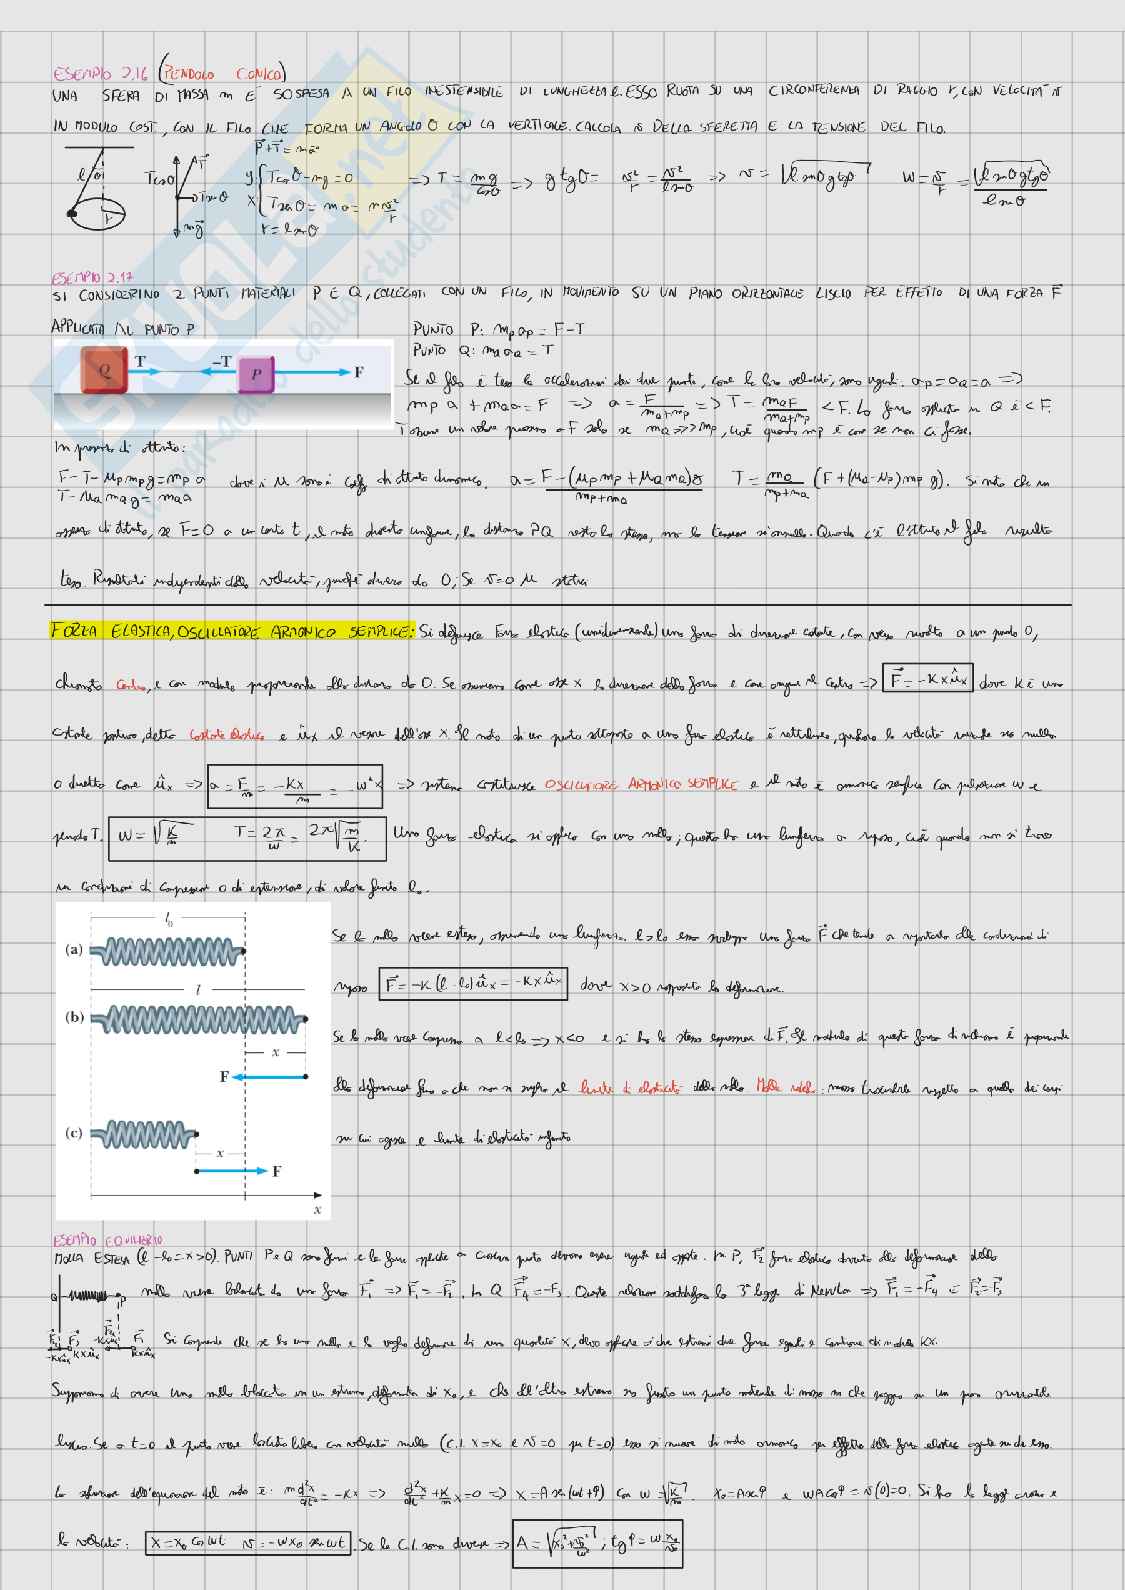 ESEMPIO 2.16 (PENDOLO CONICO)
UNA SFERA DI MASSA m E' SOSPESA A UN FILO INESTENSIBILE DI LUNGHEZZA ℓ. ESSO RUOTA SU UNA CIRCONFERENZA DI RAGGIO r, CON VELOCITA' v
IN MODULO COST, CON IL FILO CHE FORMA UN ANGOLO θ CON LA VERTICALE. CALCOLA v DELLA SFERETTA E LA TENSIONE DEL FILO.
P+T = ma
y { Tcosθ - mg = 0 => T = mg/cosθ => g tgθ = v²/r = v²/ℓsenθ => v = √ℓsenθ g tgθ W = v/r = √ℓsenθ g tgθ / ℓsenθ
x { Tsenθ = ma = mv²/r
r = ℓsenθ
ESEMPIO 2.17
SI CONSIDERINO 2 PUNTI MATERIALI P E Q, COLLEGATI CON UN FILO, IN MOVIMENTO SU UN PIANO ORIZZONTALE LISCIO PER EFFETTO DI UNA FORZA F
APPLICATA AL PUNTO P
Q T -T P F
PUNTO P: mp ap = F-T
PUNTO Q: mQ aQ = T
Se il filo è teso le accelerazioni dei due punti, come le loro velocità, sono uguali. ap = aQ = a =>
mp a + mQ a = F => a = F/mQ+mp => T = mQF/mQ+mp < F. La forza applicata in Q è < F.
T assume un valore prossimo a F solo se mQ >> mp, cioè quando mp è come se non ci fosse.
In presenza di attrito:
F - T - μp mp g = mp a dove i μ sono i coeff di attrito dinamico. a = F - (μp mp + μQ mQ)g / mp+mQ T = mQ/mp+mQ (F + (μQ - μp) mp g). Si noti che in
T - μQ mQ g = mQ a
assenza di attrito, se F=0 a un certo t, il moto diventa uniforme, la distanza PQ resta la stessa, ma la tensione si annulla. Quando c'è l'attrito il filo risulta
teso. Risultati indipendenti dalla velocità, purché diversa da 0; Se v=0 μ statico
FORZA ELASTICA, OSCILLATORE ARMONICO SEMPLICE: Si definisce forza elastica (unidimensionale) una forza di direzione costante, con verso rivolto a un punto O,
chiamato centro, e con modulo proporzionale alla distanza da O. Se assumiamo come asse x la direzione della forza e come origine il centro => F = -Kx ux dove K è una
costante positiva, detta costante elastica e ux il versore dell'asse x. Il moto di un punto sottoposto a una forza elastica è rettilineo, qualora la velocità iniziale sia nulla
o diretta come ux => a = F/m = -Kx/m = -w²x => sistema costituisce OSCILLATORE ARMONICO SEMPLICE e il moto è armonico semplice con pulsazione w e
periodo T. W = √K/m T = 2π/w = 2π√m/K. Una forza elastica si applica con una molla; questa ha una lunghezza a riposo, cioè quando non si trova
in condizioni di compressione o di estensione, di valore finito ℓ₀.
(a) l₀
(b) l
x
F
(c)
x
F
x
Se la molla viene estesa, assumendo una lunghezza ℓ>ℓ₀ essa sviluppa una forza F che tende a riportarla alle condizioni di
riposo F = -K(ℓ-ℓ₀)ux = -Kx ux dove x>0 rappresenta la deformazione.
Se la molla viene compressa a ℓ<ℓ₀ => x<0 e si ha la stessa espressione di F. Il modulo di questa forza di richiamo è proporzionale
alla deformazione fino a che non si supera il limite di elasticità della molla. Molla ideale: massa trascurabile rispetto a quella dei corpi
su cui agisce e limite di elasticità infinito
ESEMPIO EQUILIBRIO
MOLLA ESTESA (ℓ-ℓ₀ = x>0). PUNTI P e Q sono fermi e le forze applicate a ciascun punto devono essere uguali ed opposte. In P, F₂ forza elastica dovuta alla deformazione della
molla viene bilanciata da una forza F₁ => F₁ = -F₂. In Q F₄ = -F₃. Queste relazioni soddisfano la 3ª legge di Newton => F₁ = -F₄ e F₂ = F₃
Si comprende che se ho una molla e la voglio deformare di una quantità x, devo applicare ai due estremi due forze uguali e contrarie di modulo Kx.
Supponiamo di avere una molla bloccata in un estremo, deformata di x₀, e che all'altro estremo sia fissato un punto materiale di massa m che poggia su un piano orizzontale
liscio. Se a t=0 il punto viene lasciato libero con velocità nulla (C.I. x=x₀ e v=0 per t=0) esso si muove di moto armonico per effetto della forza elastica agente su di esso.
La soluzione dell'equazione del moto è: m d²x/dt² = -Kx => d²x/dt² + K/m x = 0 => x = A sen(wt+φ) con w = √K/m. x₀ = A senφ e wA cosφ = v(0) = 0. Si ha la legge oraria e
la velocità: x = x₀ cos wt v = -wx₀ sen wt. Se le C.I. sono diverse => A = √x₀²+v₀²/w² ; tgφ = w x₀/v₀